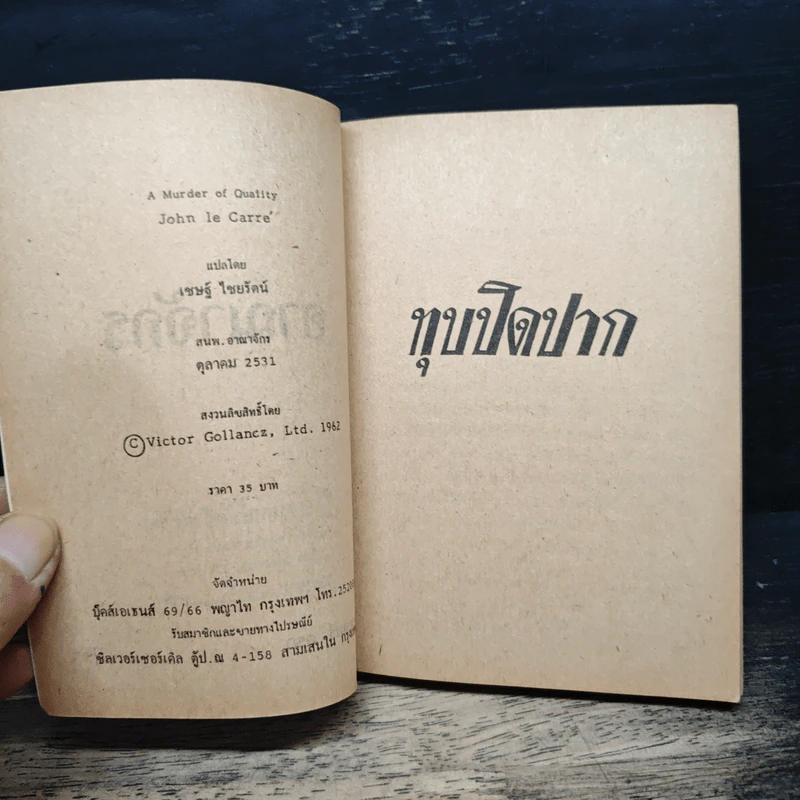 A Murder of Quality
John le Carre'
แปลโดย
เชษฐ์ ไชยรัตน์
สนพ.อาณาจักร
ตุลาคม 2531
สงวนลิขสิทธิ์โดย
©Victor Gollancz, Ltd. 1962
ราคา 35 บาท
จัดจำหน่าย
บุ๊คส์เอเยนส์ 69/66 พญาไท กรุงเทพฯ โทร.
รับสมาชิกและขายทางไปรษณีย์
ซิลเวอร์เซอร์เคิล ตู้ป.ณ 4-158 สามเสนใน
ทุบปิดปาก